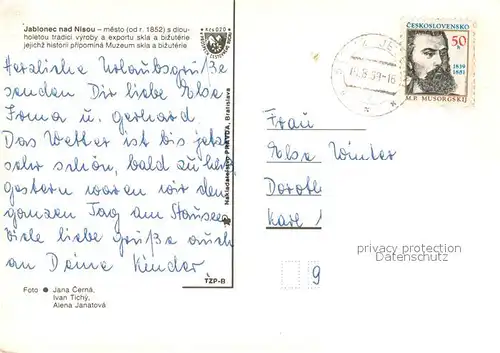 Jablonec nad Nisou – město (od r. 1852) s dlou-
holetou tradicí výroby a exportu skla a bižutérie
jejichž historii připomíná Muzeum skla a bižutérie
Herzliche Urlaubsgrüße
senden Dir liebe Else
Irma u. Gerhard.
Das Wetter ist bis jetzt
sehr schön, bald zu
gestern waren wir den
ganzen Tag am Stausee
Viele liebe Grüße auch
an Deine Kinder
Foto ● Jana Černá,
Ivan Tichý,
Alena Janatová
TZP-B
Nakladatelství PRAVDA, Bratislava
Kčs 020
ČESKOSLOVENSKO
50 h
1839
1881
M.P. MUSORGSKIJ
Frau
Else Winter
Dorothe
Karl
9
privacy protection
Datenschutz